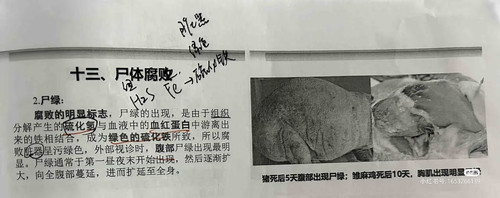 绿色
H₂S Fe → 硫化铁
十三、尸体腐败
2.尸绿:
腐败的明显标志，尸绿的出现，是由于组织
分解产生的硫化氢与血液中的血红蛋白中游离出
来的铁相结合，成为绿色的硫化铁所致，所以腐
败脏器呈污绿色，外部视诊时，腹部尸绿出现最明
显。尸绿通常于第一昼夜末开始出现，然后逐渐扩
大，向全腹部蔓延，进而扩延至全身。
猪死后5天腹部出现尸绿；雏麻鸡死后10天，胸肌出现明显